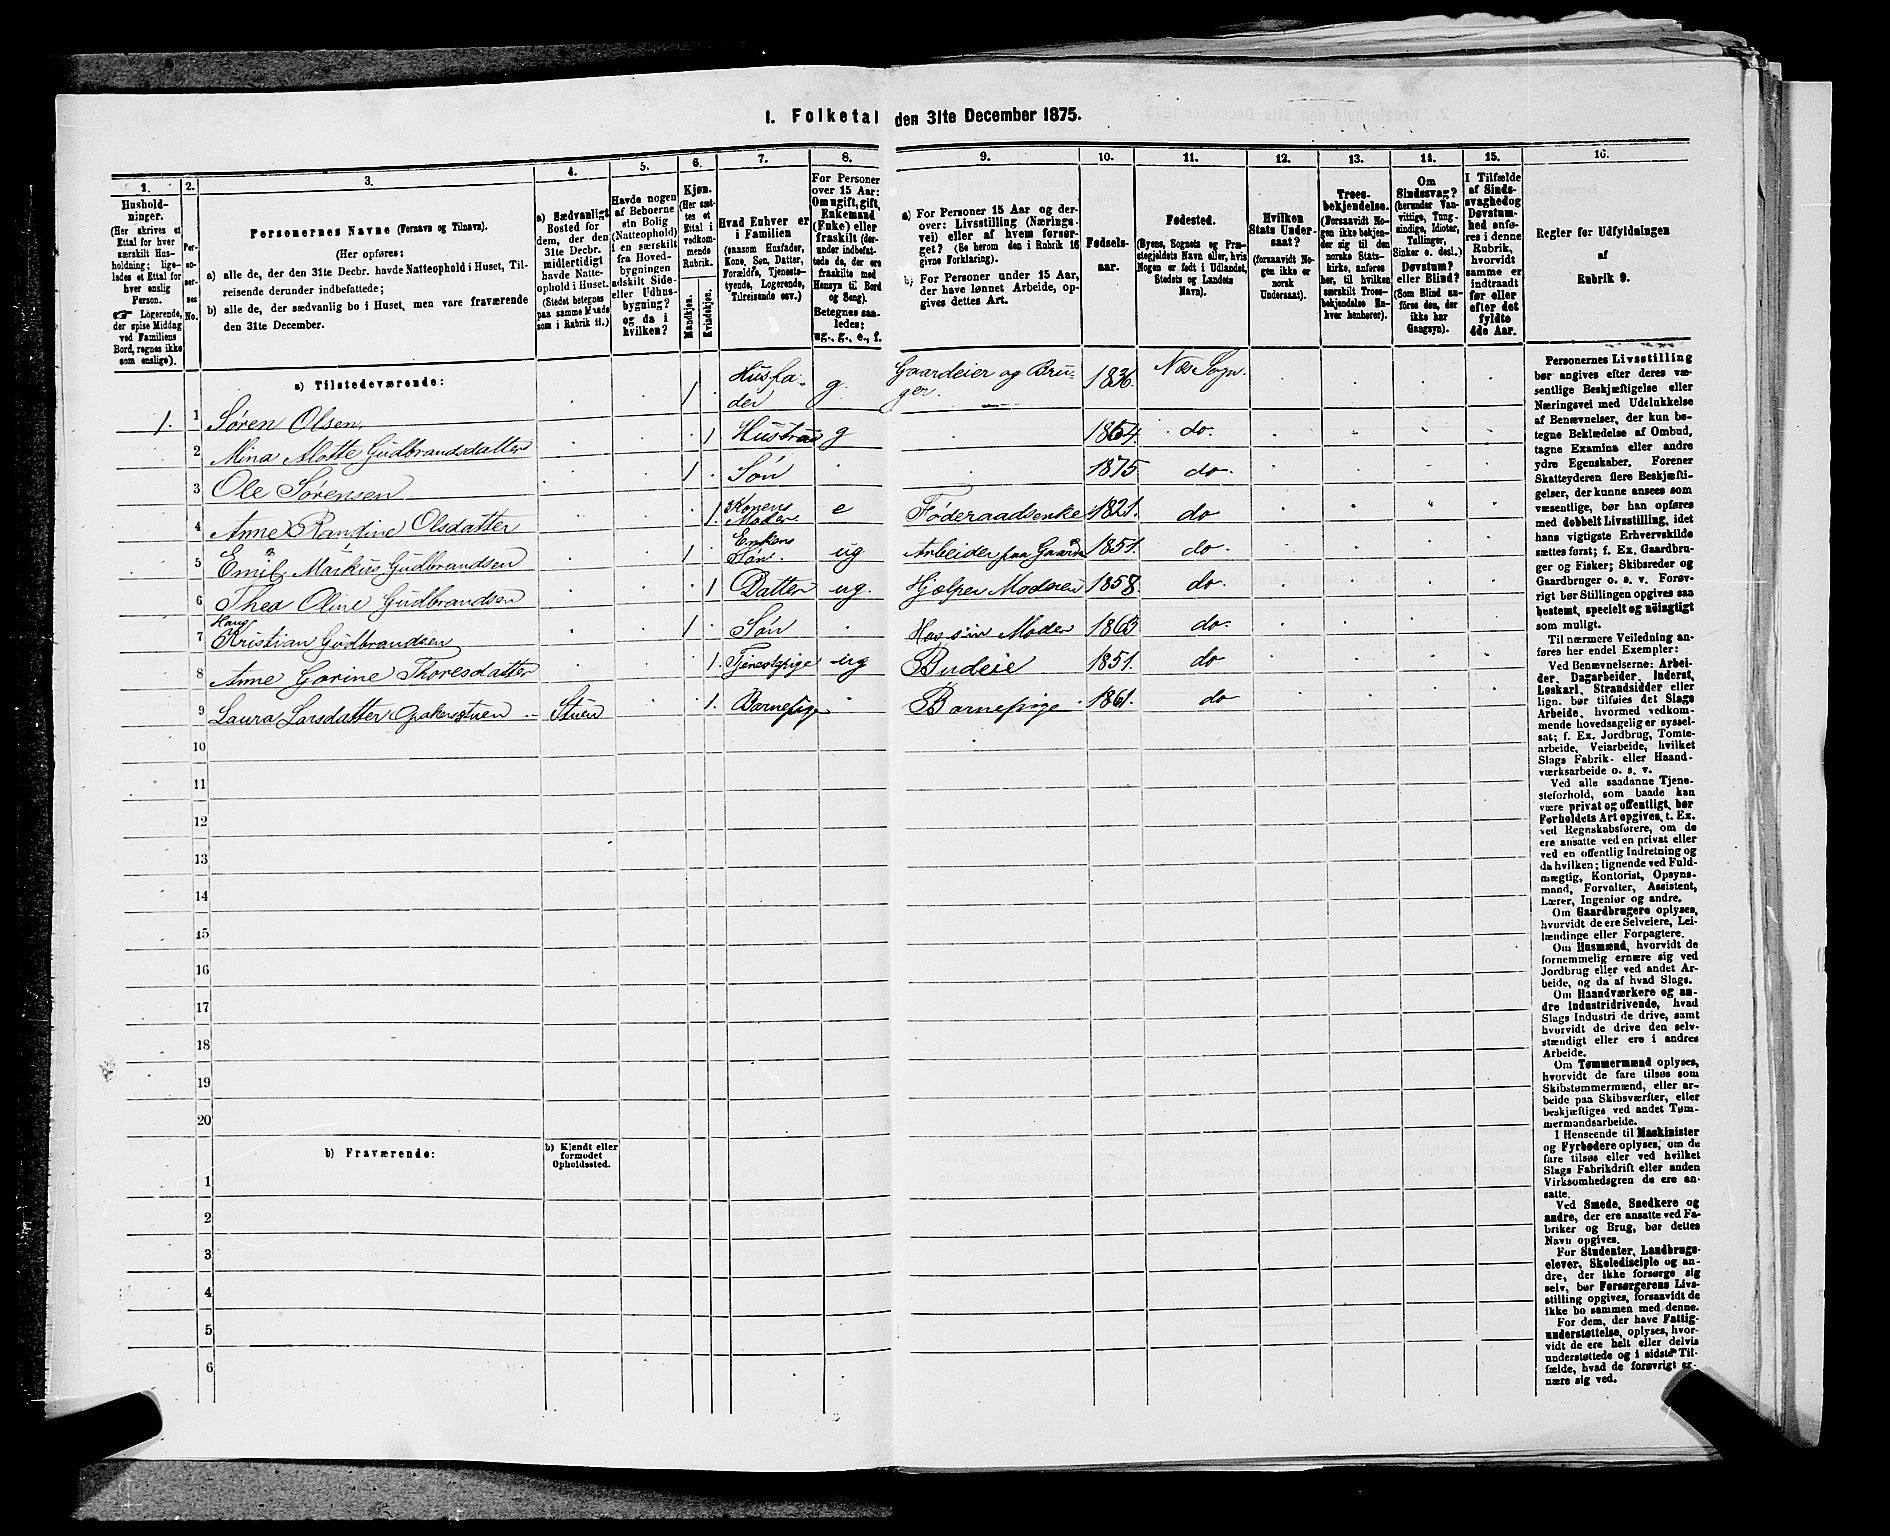 1. Folketal den 31te December 1875.
1.
Hushold-
ninger.
(Her skrives et
Ettal for hver
særskilt Hus-
holdning; lige-
ledes et Ettal for
hver enslig
Person.
☞ Logerende,
der spise Middag
ved Familiens
Bord, regnes ikke
som enslige).
2.
Per-
so-
ner-
nes
No.
3.
Personernes Navne (Fornavn og Tilnavn).
(Her opføres:
a) alle de, der den 31te Decbr. havde Natteophold i Huset, Til-
reisende derunder indbefattede;
b) alle de, der sædvanlig bo i Huset, men vare fraværende
den 31te December.
4.
a) Sædvanligt
Bosted for
dem, der den
31te Decbr.
midlertidigt
havde Natte-
ophold i Huset.
(Stedet betegnes
paa samme Maade
som i Rubrik 11.)
5.
Havde nogen
af Beboerne
sin Bolig
(Natteophold)
i en særskilt
fra Hoved-
bygningen
adskilt Side-
eller Udhus-
bygning?
og da i
hvilken?
6.
Kjøn.
(Her sæt-
tes et
Ettal i
vedkom-
mende
Rubrik.
Mandkjøn.
Kvindekjøn.
7.
Hvad Enhver er
i Familien
(saasom Husfader,
Kone, Søn, Datter,
Forældre, Tjeneste-
tyende, Logerende,
Tilreisende osv.)
8.
For Personer
over 15 Aar:
Om ugift, gift,
Enkemand
(Enke) eller
fraskilt (der-
under indbefat-
tede de, der ere
fraskilte med
Hensyn til Bord
og Seng).
Betegnes saa-
ledes:
ug., g., e., f.
9.
a) For Personer 15 Aar og der-
over: Livsstilling (Nærings-
vei) eller af hvem forsør-
get? (Se herom den i Rubrik 16
givne Forklaring).
b) For Personer under 15 Aar,
der have lønnet Arbeide, op-
gives dettes Art.
10.
Fødsels-
aar.
11.
Fødested.
(Byens, Sognets og Præ-
stegjeldets Navn eller, hvis
Nogen er født i Udlandet,
Stedets og Landets
Navn).
12.
Hvilken
Stats Under-
saat?
(forsaavidt No-
gen ikke er
norsk
Undersaat).
13.
Troes-
bekjendelse.
(Forsaavidt No-
gen ikke bekjen-
der sig til den
norske Stats-
kirke, anføres
her, til hvilken
særskilt Troes-
bekjendelse En-
hver henhører).
14.
Om
Sindssvag?
(herunder Van-
vittige, Tung-
sindige, Idioter,
Tullinger,
Sinker o. desl.)
Døvstum?
eller Blind?
(Som Blind an-
føres den, der
ikke har
Gangsyn).
15.
I Tilfælde
af Sinds-
svaghed og
Døvstum-
hed anfø-
res i denne
Rubrik,
hvorvidt
samme er
indtraadt
før eller
efter det
fyldte
4de Aar.
16.
Regler for Udfyldningen
af
Rubrik 9.
a) Tilstedeværende:
1. 1 Søren Olsen, 1 Husfa-
der g. Gaardeier og Bru-
ger. 1836. Næs Sogn.
2 Mina Alotte Gudbrandsdatter 1 Hustrue g 1854. do.
3 Ole Sørensen 1 Søn 1875 do.
4 Anne Randine Olsdatter 1. Konens
Moder e Føderaadsenke 1821. do
5 Emil Markus Gudbrandsen 1 Enkens
Søn. ug Arbeider paa Gaarden 1851. do.
6 Thea Oline Gudbrandsen 1 Datter ug. Hjælper Moderen 1858. do.
7 Hans
Kristian Gudbrandsen 1 Søn Hos sin Moder 1863 do.
8 Anne Gorine Thoresdatter 1. Tjenestpige ug Budeie 1851. do
9 Laura Larsdatter Opakerstuen Stuen 1. Barnepige Barnepige 1861. do
10
11
12
13
14
15
16
17
18
19
20
b) Fraværende:
b) Kjendt eller
formodet
Opholdssted.
1
2
3
4
5
6
Personernes Livsstilling
bør angives efter deres væ-
sentlige Beskjæftigelse eller
Næringsvei med Udelukkelse
af Benævnelser, der kun be-
tegne Beklædelse af Ombud,
tagne Examina eller andre
ydre Egenskaber. Forener
Skatteyderen flere Beskjæfti-
gelser, der kunne ansees som
væsentlige, bør han opføres
med dobbelt Livsstilling, idet
hans vigtigste Erhvervskilde
sættes først; f. Ex. Gaardbru-
ger og Fisker; Skibsreder og
Gaardbruger o. s. v. Forøv-
rigt bør Stillingen opgives saa
bestemt, specielt og nøiagtigt
som muligt.
Til nærmere Veiledning an-
føres her endel Exempler:
Ved Benævnelserne: Arbei-
der, Dagarbeider, Inderst,
Løskarl, Strandsidder eller
lign. bør tilføies det Slags
Arbeide, hvormed vedkom-
mende hovedsagelig er syssel-
sat; f. Ex. Jordbrug, Tomte-
arbeide, Veiarbeide, hvilket
Slags Fabrik- eller Haand-
værksarbeide o. s. v.
Ved alle saadanne Tjene-
steforhold, som baade kan
være privat og offentligt, bør
Forholdets Art opgives, t. Ex.
ved Regnskabsførere, om de
ere ansatte ved en privat eller
ved en offentlig Indretning og
da hvilken; lignende ved Fuld-
mægtig, Kontorist, Opsyns-
mand, Forvalter, Assistent,
Lærer, Ingeniør og andre.
Om Gaardbrugere oplyses,
hvorvidt de ere Selveiere, Lei-
lændinge eller Forpagtere.
Om Husmænd, hvorvidt de
fornemmelig ernære sig ved
Jordbrug eller ved andet Ar-
beide, og da af hvad Slags.
Om Haandværkere og an-
dre Industridrivende, hvad
Slags Industri de drive, samt
hvorvidt de drive den selv-
stændigt eller ere i andres
Arbeide.
Om Tømmermænd oplyses,
hvorvidt de fare tilsøs som
Skibstømmermænd, eller ar-
beide paa Skibsværfter, eller
beskjæftiges ved andet Tøm-
mermandsarbeide.
I Henseende til Maskinister
og Fyrbødere oplyses, om de
fare tilsøs eller ved hvilket
Slags Fabrikdrift eller anden
Virksomhedsgren de ere an-
satte.
Ved Smede, Snedkere og
andre, der ere ansatte ved Fa-
briker og Brug, bør dettes
Navn opgives.
For Studenter, Landbrugs-
elever, Skoledisciple og an-
dre, der ikke forsørge sig
selv, bør Forsørgerens Livs-
stilling opgives, forsaavidt de
ikke bo sammen med denne.
For dem, der have Fattig-
understøttelse, oplyses, hvor-
vidt de ere helt eller delvis
understøttede og i sidste Til-
fælde, hvad de forøvrigt er-
nære sig ved.